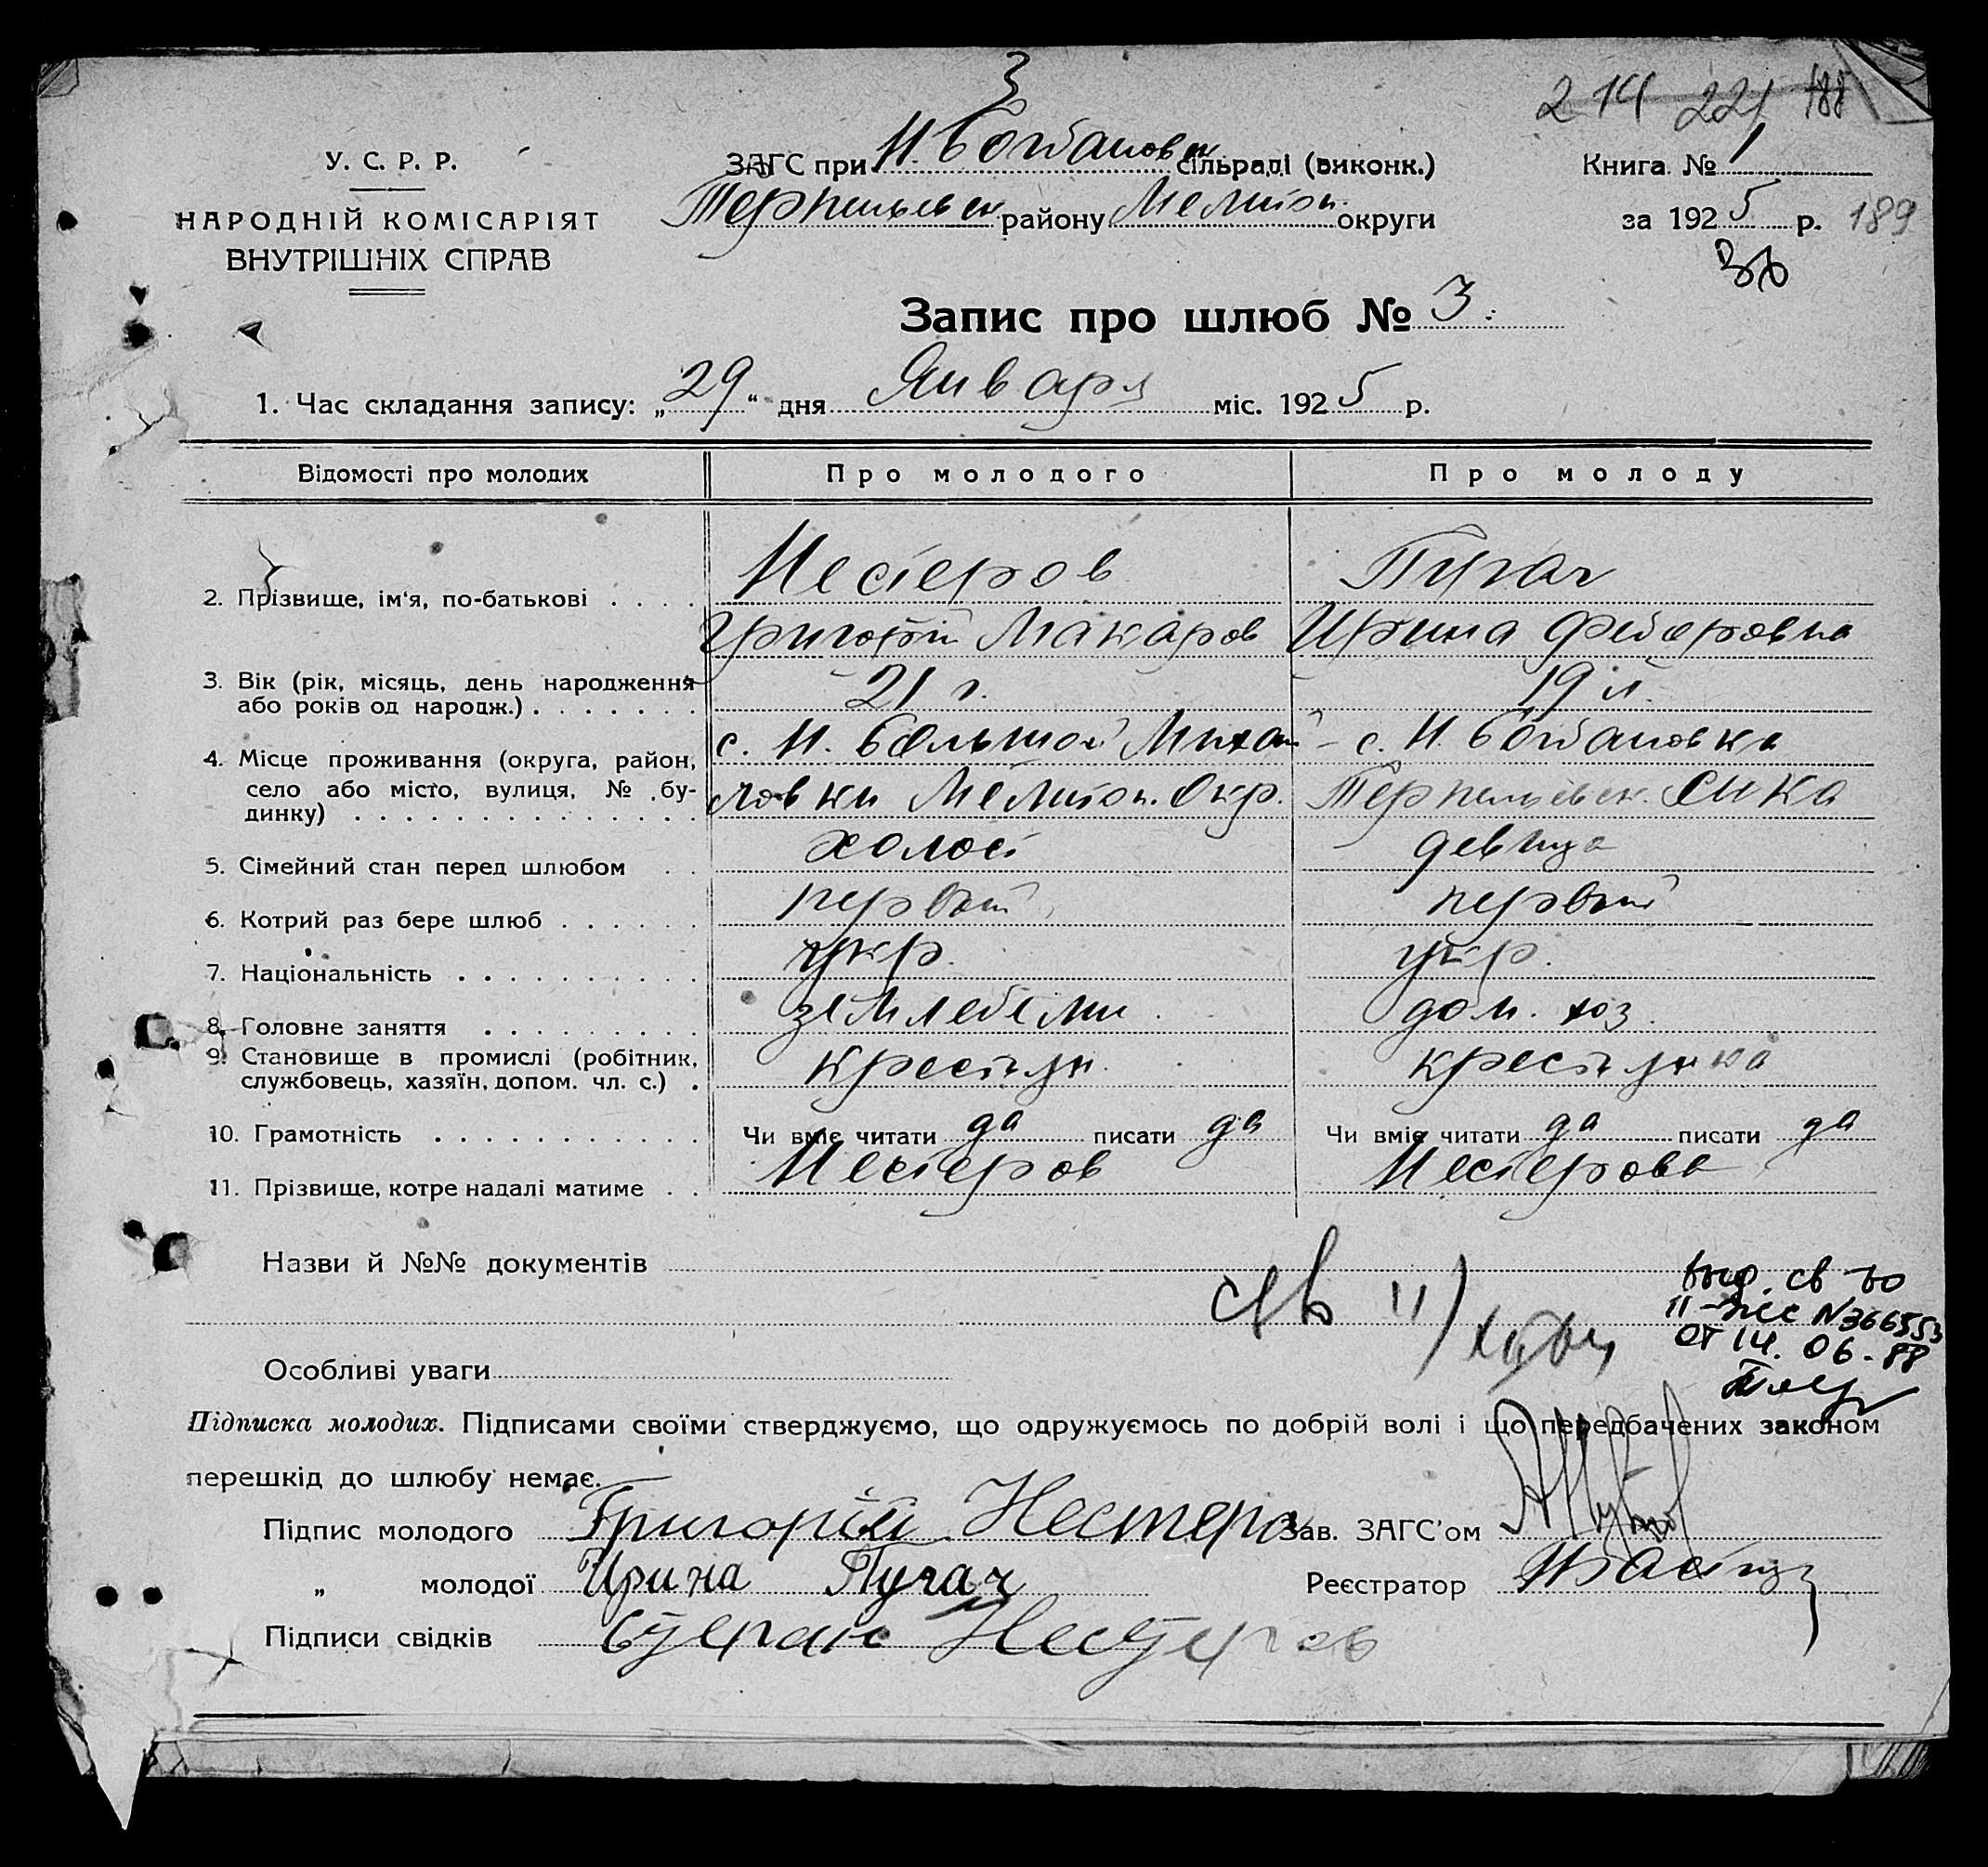 3
214 221 188
У. С. Р. Р.
НАРОДНІЙ КОМІСАРІЯТ
ВНУТРІШНІХ СПРАВ
ЗАГС при Н. Богдановск сільраді (виконк.)
Терпеньевск. району Мелитоп. округи
Книга № 1
за 1925 р. 189
Запис про шлюб № 3.
1. Час складання запису: „29“ дня Января міс. 1925 р.
Відомості про молодих Про молодого Про молоду
2. Прізвище, ім‘я, по-батькові Нестеров Пугач
Григорій Макаров Ирина Федоровна
3. Вік (рік, місяць, день народження
або років од народж.) 21 г. 19 л.
4. Місце проживання (округа, район,
село або місто, вулиця, № бу-
динку)
с. Н. Большой Михай- с. Н. Богдановка
ловки Мелитоп. Окр. Терпеньевск.
5. Сімейний стан перед шлюбом холост девица
6. Котрий раз бере шлюб первый первый
7. Національність укр. укр.
8. Головне заняття дом. хоз.
9. Становище в промислі (робітник,
службовець, хазяїн, допом. чл. с.) крестьян. крестьянка
10. Грамотність Чи вміє читати да писати да Чи вміє читати да писати да
11. Прізвище, котре надалі матиме Нестеров Нестерова
Назви й №№ документів
выд. св-во
II-жс №366553
от 14.06-88
Особливі уваги
Підписка молодих. Підписами своїми стверджуємо, що одружуємось по добрій волі і що передбачених законом
перешкід до шлюбу немає.
Підпис молодого Григорій Нестеров Зав. ЗАГС’ом
„ молодої Ирина Пугач Реєстратор
Підписи свідків Нестеров